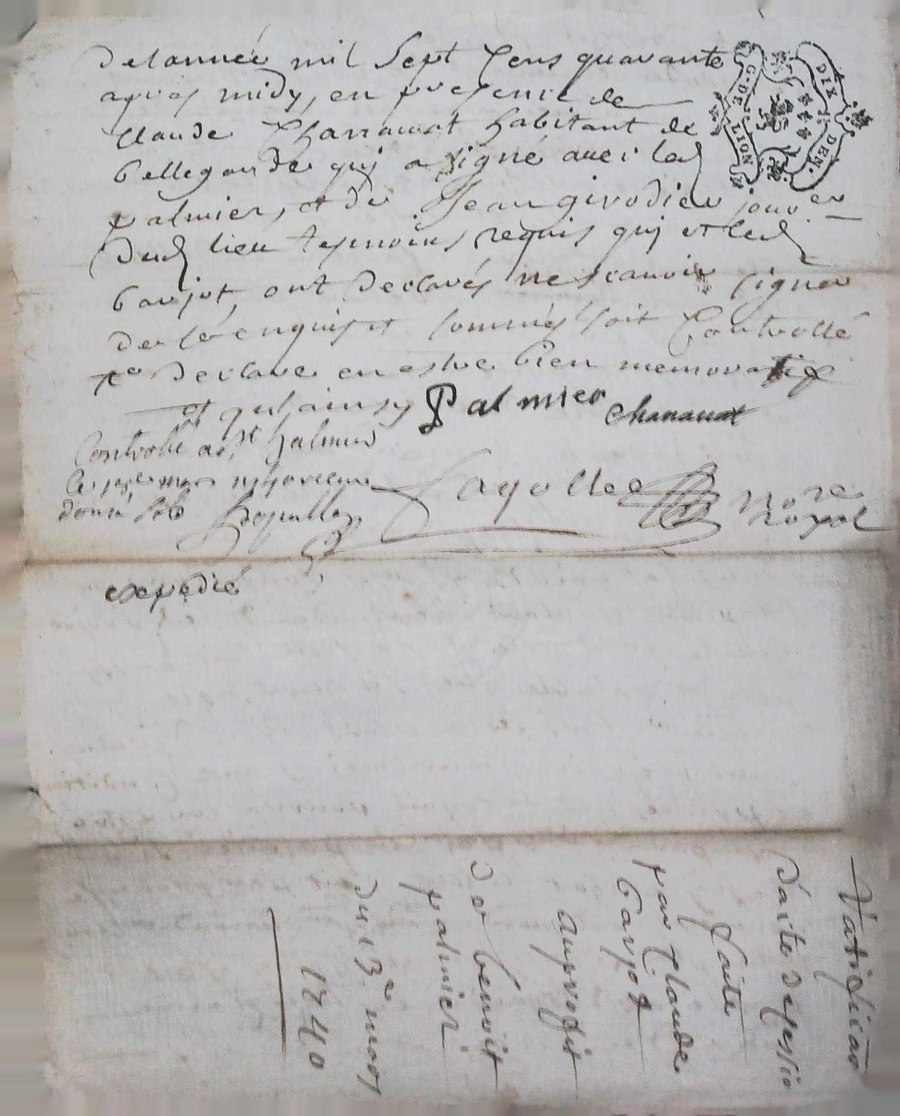 de lannée mil Sept Cens quarante
apres midy, en presence de
Claude Chanauat habitant de
bellegarde quj a signé avec led
palmier, et de Jean girodier jour er
dud lieu tesmoins requis quj et led
barjot, ont declarés ne scauoir signer
de ce enquis et sommés soit Controllé
declare en estre bien memoratif
et quil ainsy Palmier Chanauat
Controllé a St Galmier
le mars
donné solz
Fayolle Nore
Royal
expedié
G. DE LION
DIX DEN.
Ratificaon
dacte de
faite
par Claude
barjot
au profit
de benoit
palmier
du 13e mars
1740